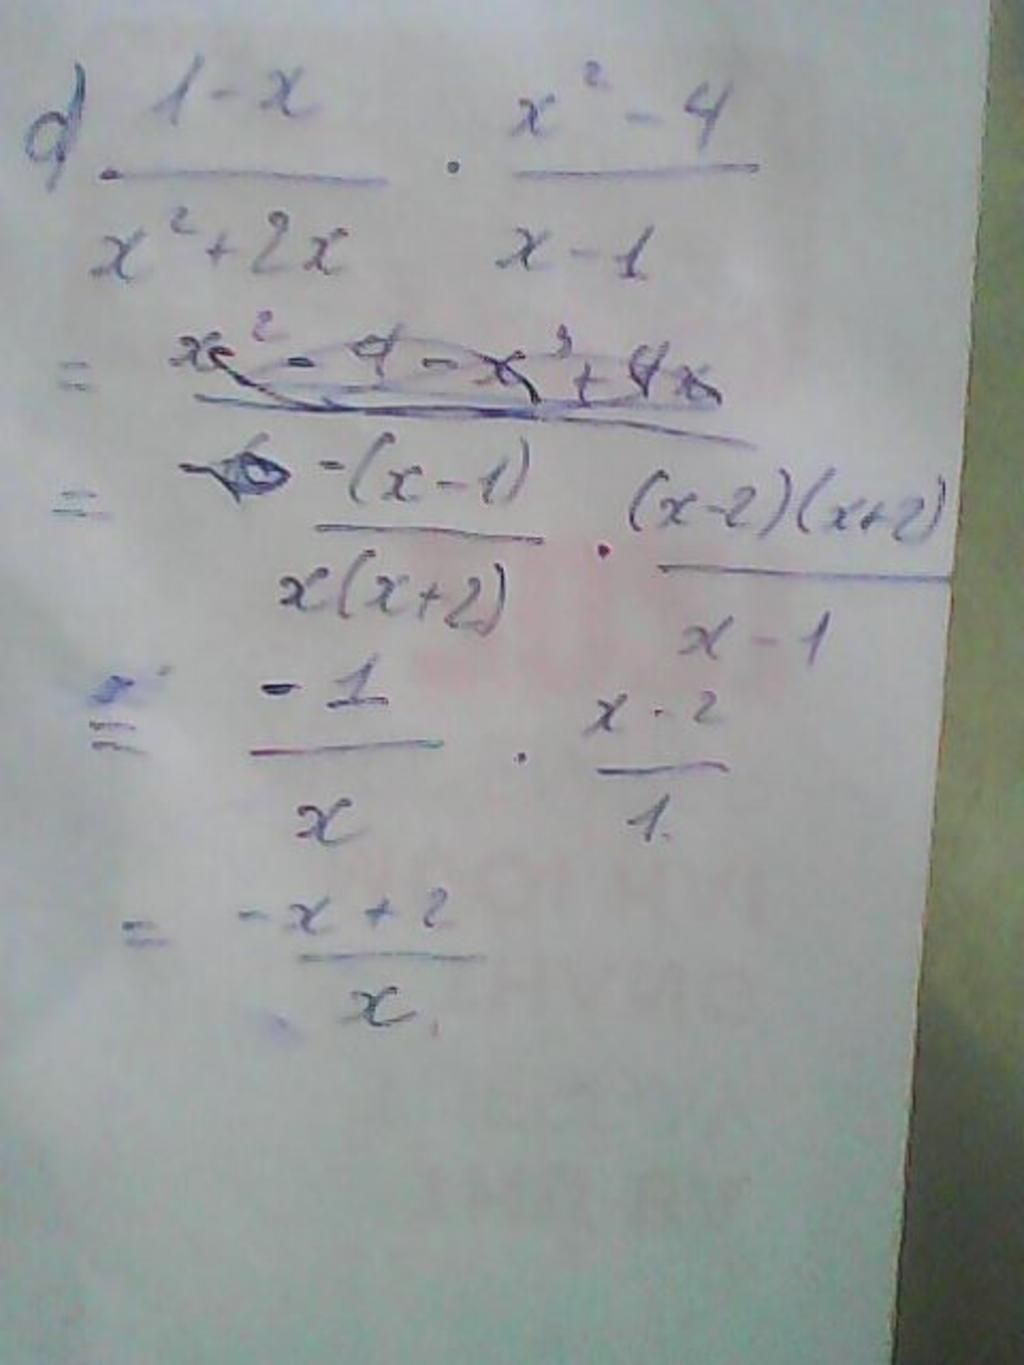 d) 1-x / x²+2x · x²-4 / x-1
= x²-4-x³+4x
= -(x-1) / x(x+2) · (x-2)(x+2) / x-1
= -1 / x · x-2 / 1
= -x+2 / x